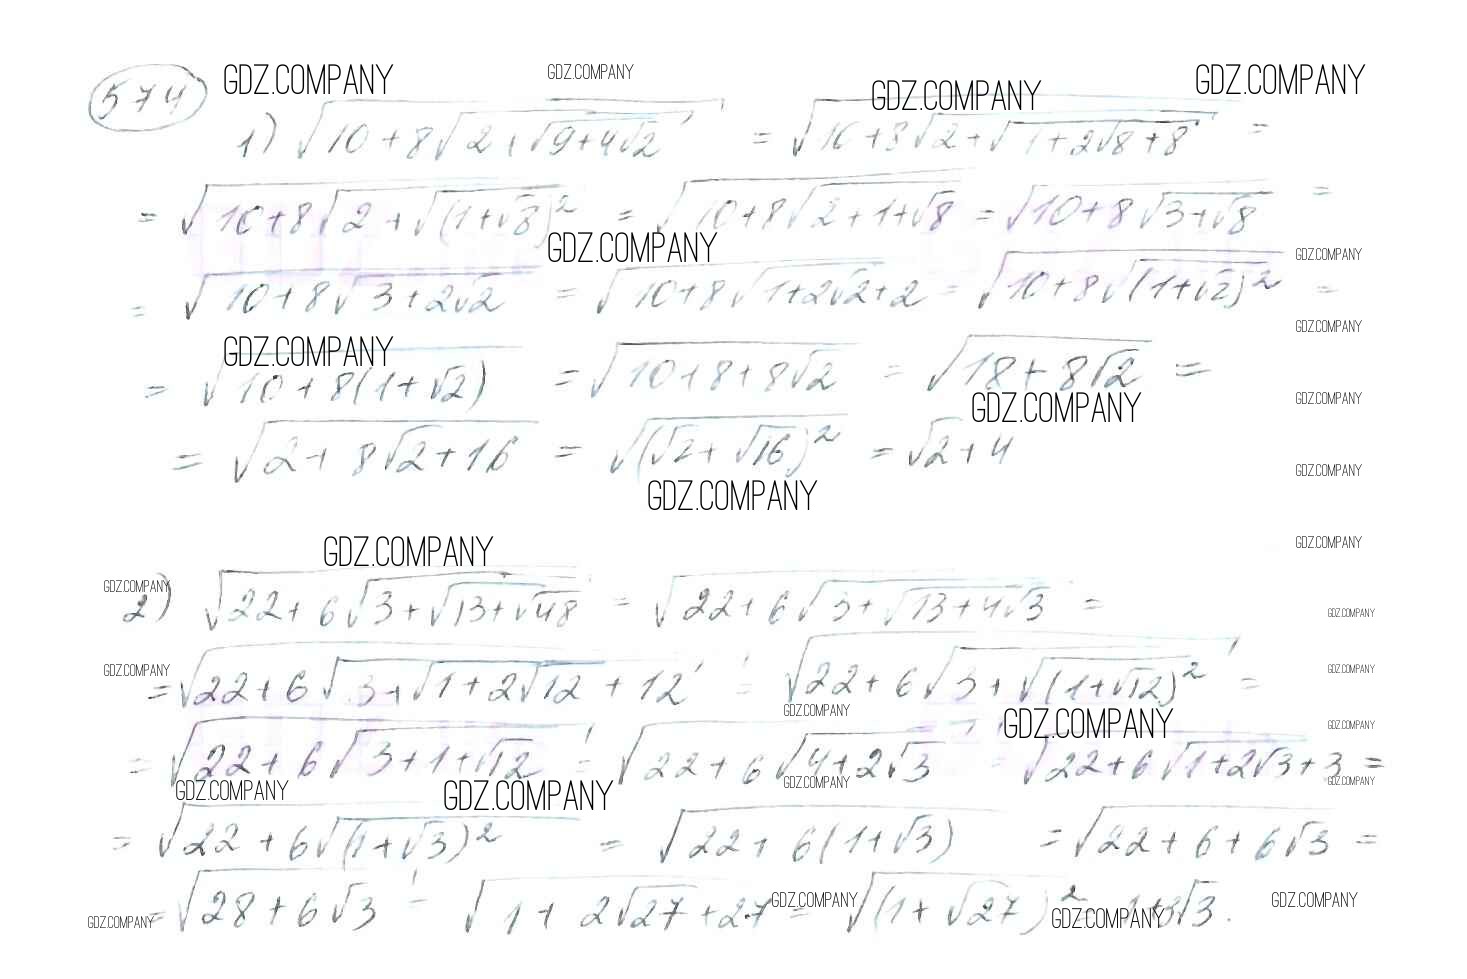 574 GDZ.COMPANY GDZ.COMPANY GDZ.COMPANY GDZ.COMPANY
1) √(10+8√(2+√(9+4√2))) = √(10+8√(2+√(1+2√8+8))) =
= √(10+8√(2+√(1+√8)²)) = √(10+8√(2+1+√8)) = √(10+8√(3+√8)) =
GDZ.COMPANY GDZ.COMPANY
= √(10+8√(3+2√2)) = √(10+8√(1+2√2+2)) = √(10+8√(1+√2)²) =
GDZ.COMPANY GDZ.COMPANY
= √(10+8(1+√2)) = √(10+8+8√2) = √(18+8√2) =
GDZ.COMPANY GDZ.COMPANY
= √(2+8√2+16) = √((√2+√16)²) = √2+4
GDZ.COMPANY
GDZ.COMPANY
GDZ.COMPANY GDZ.COMPANY
GDZ.COMPANY
2) √(22+6√(3+√(13+√48))) = √(22+6√(3+√(13+4√3))) =
GDZ.COMPANY
GDZ.COMPANY GDZ.COMPANY
= √(22+6√(3+√(1+2√12+12))) = √(22+6√(3+√(1+√12)²)) =
GDZ.COMPANY GDZ.COMPANY GDZ.COMPANY
= √(22+6√(3+1+√12)) = √(22+6√(4+2√3)) = √(22+6√(1+2√3+3)) =
GDZ.COMPANY GDZ.COMPANY GDZ.COMPANY GDZ.COMPANY
= √(22+6√(1+√3)²) = √(22+6(1+√3)) = √(22+6+6√3) =
= √(28+6√3) = √(1+2√27+27) = √((1+√27)²) = 1+3√3.
GDZ.COMPANY GDZ.COMPANY GDZ.COMPANY GDZ.COMPANY